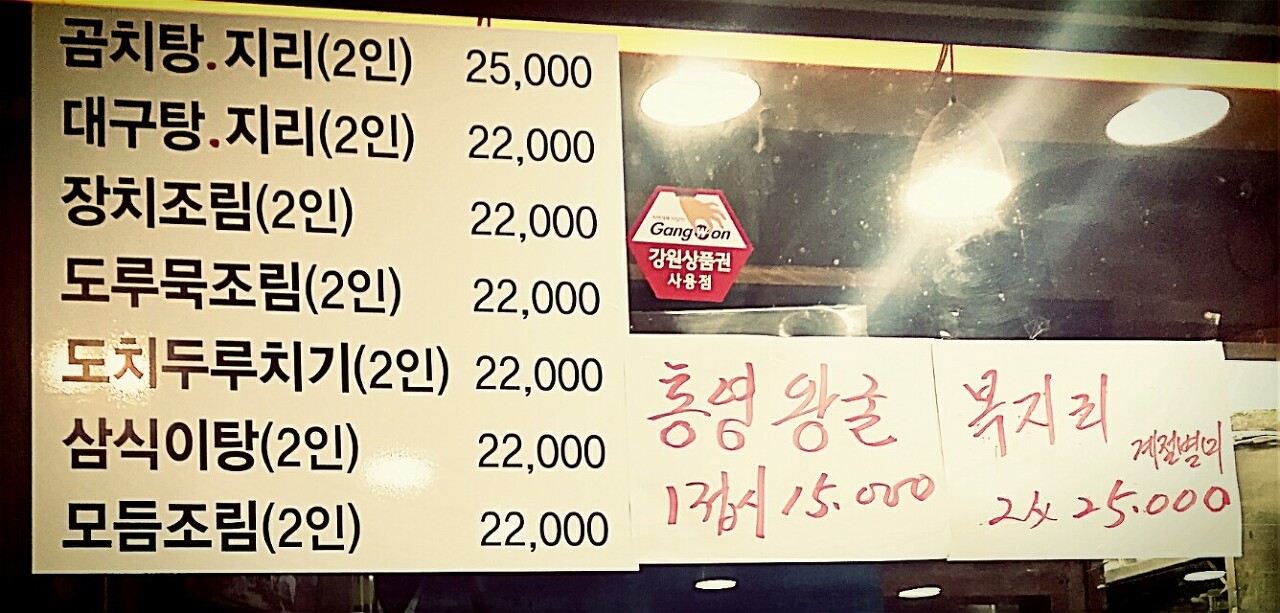 곰치탕.지리(2인) 25,000
대구탕.지리(2인) 22,000
장치조림(2인) 22,000
도루묵조림(2인) 22,000
도치두루치기(2인) 22,000
삼식이탕(2인) 22,000
모듬조림(2인) 22,000
GangWon
강원상품권
사용점
통영 왕굴
1접시 15.000
복지리
계절별미
2人 25.000